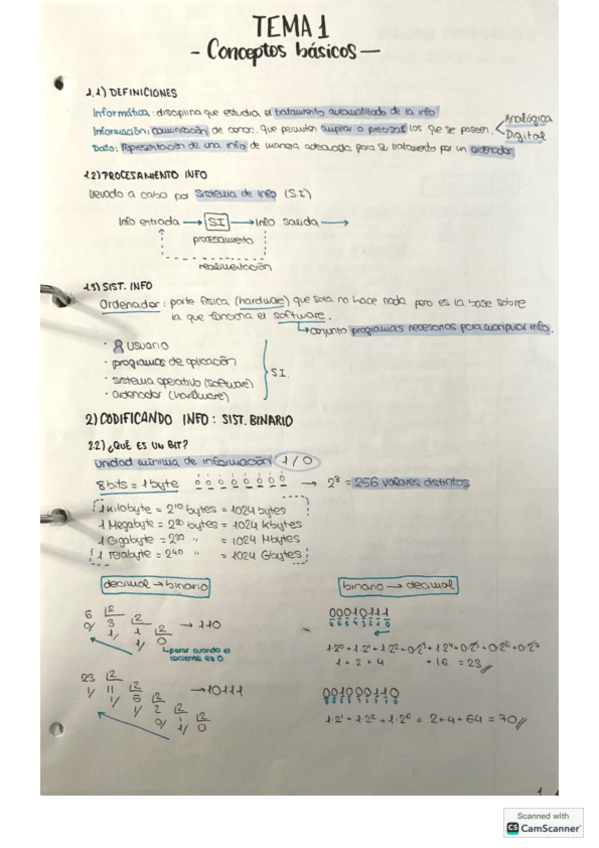 TEMA 1
- Conceptos básicos -
1.1) DEFINICIONES
Informática: disciplina que estudia el tratamiento automatizado de la info
Información: comunicación de conoc. que permiten ampliar o precisar los que se poseen. Analógica
Digital
Dato: Representación de una info de manera adecuada para su tratamiento por un ordenador
1.2) PROCESAMIENTO INFO
llevado a cabo por Sistema de info (S.I)
Info entrada → SI → Info salida →
procesamiento
realimentación
1.3) SIST. INFO
Ordenador: parte física (hardware) que sola no hace nada pero es la base sobre
la que funciona el software.
↳ conjunto programas necesarios para manipular info.
· Usuario
· programas de aplicación
· sistema operativo (software)
· ordenador (hardware)
S.I.
2) CODIFICANDO INFO: SIST. BINARIO
2.2) ¿QUÉ ES UN BIT?
unidad mínima de información 1/0
8 bits = 1 byte 0 0 0 0 0 0 0 0 → 2⁸ = 256 valores distintos
1 Kilobyte = 2¹⁰ bytes = 1024 bytes
1 Megabyte = 2²⁰ bytes = 1024 Kbytes
1 Gigabyte = 2³⁰ " = 1024 Mbytes
1 Terabyte = 2⁴⁰ " = 1024 Gbytes
decimal → binario
binario → decimal
6 |2
0/ 3 |2
1/ 1 |2
1/ 0
→ 110
↳ parar cuando el
cociente es 0
00010111
1·2⁰+1·2¹+1·2²+0·2³+1·2⁴+0·2⁵+0·2⁶+0·2⁷
1 + 2 + 4 + 16 = 23
23 |2
1/ 11 |2
1/ 5 |2
1/ 2 |2
0/ 1 |2
1/ 0
→ 10111
001000110
1·2¹ + 1·2² + 1·2⁶ = 2+4+64 = 70
1
Scanned with
CS CamScanner